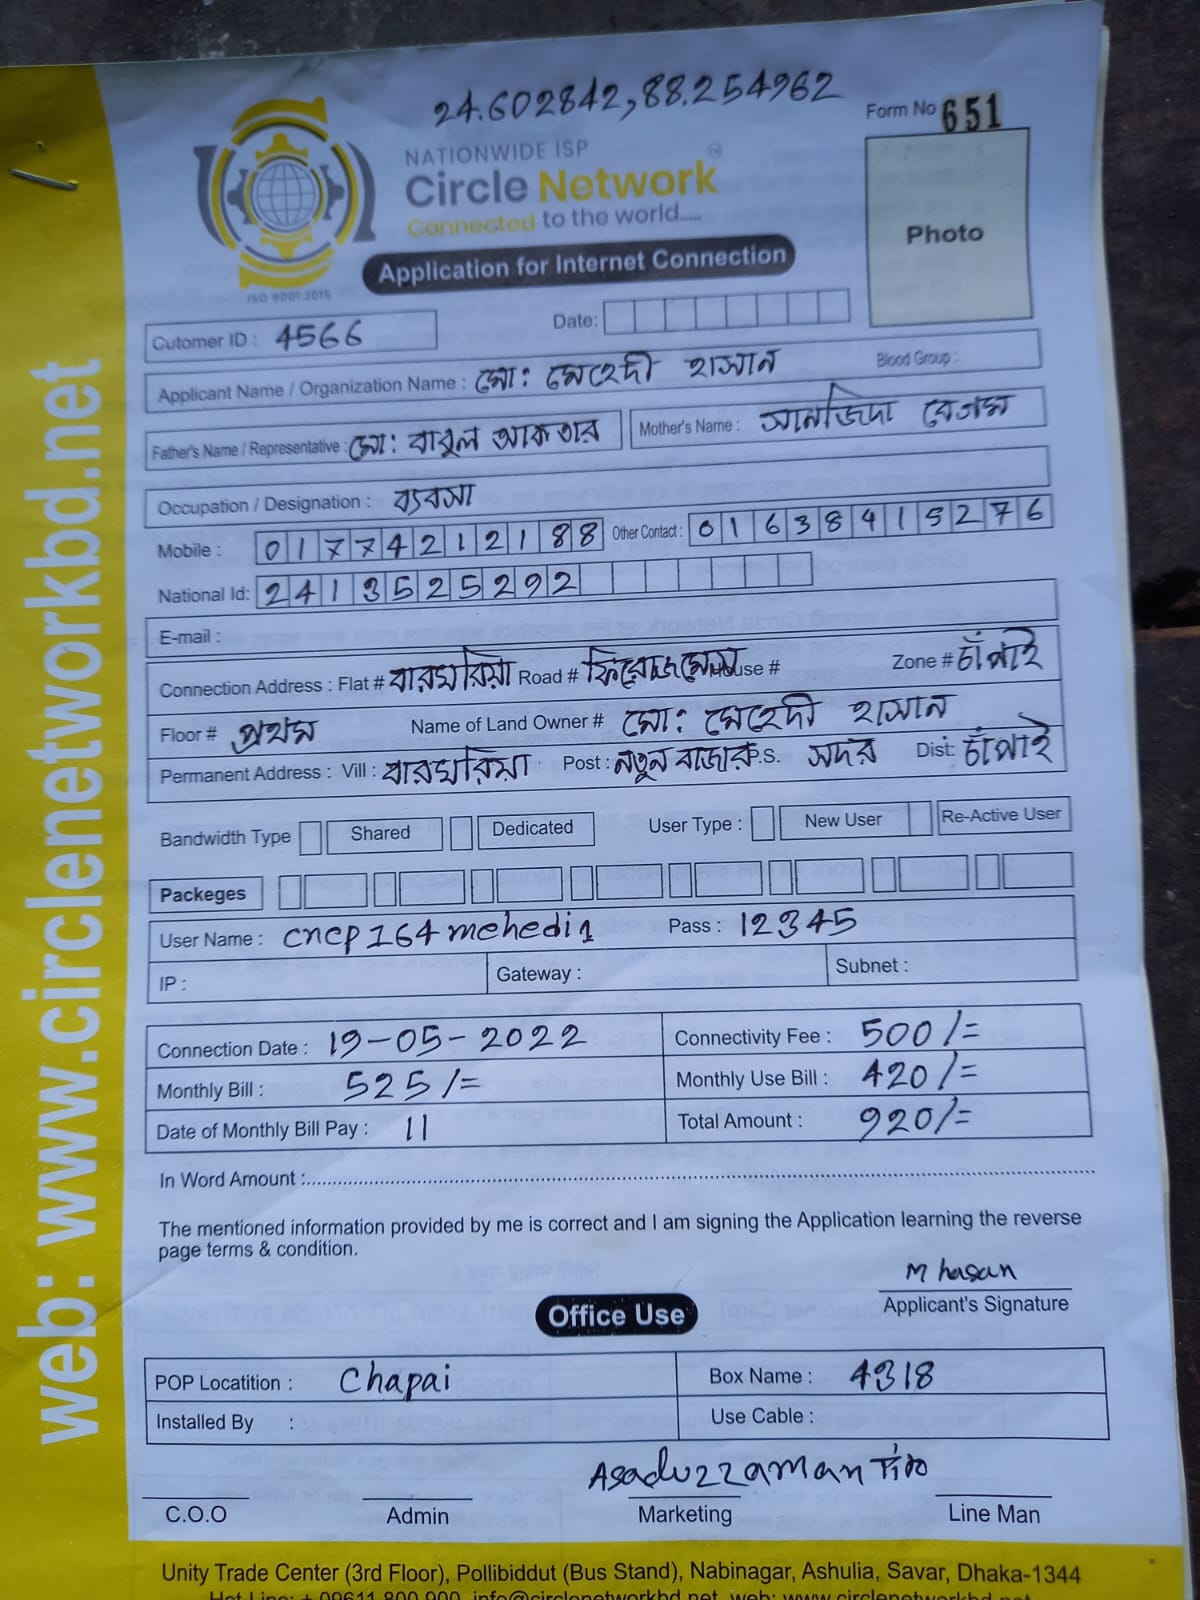 24.602842,88.254962
Form No 651
NATIONWIDE ISP
Circle Network
Connected to the world.....
Application for Internet Connection
Photo
ISO 9001:2015
Cutomer ID : 4566
Date:
Applicant Name / Organization Name : মো: মেহেদী হাসান Blood Group :
Father's Name / Representative : মো: বাবুল আকতার Mother's Name : সানজিদা বেগম
Occupation / Designation : ব্যবসা
Mobile : 01774212188 Other Contact : 01638415276
National Id: 2413525292
E-mail :
Connection Address : Flat # বারঘরিয়া Road # ফিরোজ মেস House # Zone # চাঁপাই
Floor # প্রথম Name of Land Owner # মো: মেহেদী হাসান
Permanent Address : Vill : বারঘরিয়া Post : নতুন বাজার P.S. সদর Dist: চাঁপাই
Bandwidth Type Shared Dedicated User Type : New User Re-Active User
Packeges
User Name : cncp164mehedi1 Pass : 12345
IP : Gateway : Subnet :
Connection Date : 19-05-2022 Connectivity Fee : 500/=
Monthly Bill : 525/= Monthly Use Bill : 420/=
Date of Monthly Bill Pay : 11 Total Amount : 920/=
In Word Amount :
The mentioned information provided by me is correct and I am signing the Application learning the reverse
page terms & condition.
M hasan
Applicant's Signature
Office Use
POP Locatition : Chapai Box Name : 4318
Installed By : Use Cable :
Asaduzzaman
C.O.O Admin Marketing Line Man
Unity Trade Center (3rd Floor), Pollibiddut (Bus Stand), Nabinagar, Ashulia, Savar, Dhaka-1344
Hot Line: + 09611 800 900, info@circlenetworkbd.net, web: www.circlenetworkbd.net
web: www.circlenetworkbd.net